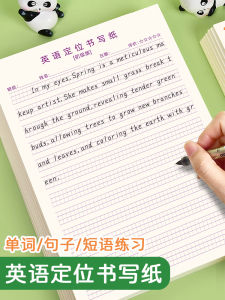 英语定位书写纸
[初级版]
In my eyes,Spring is a meticulous ma
keup artist.She makes small grass break t
hrough the ground,revealing tender green
buds,allowing trees to grow new branches
and leaves,and coloring the earth with gr
een.
单词/句子/短语练习
英语定位书写纸